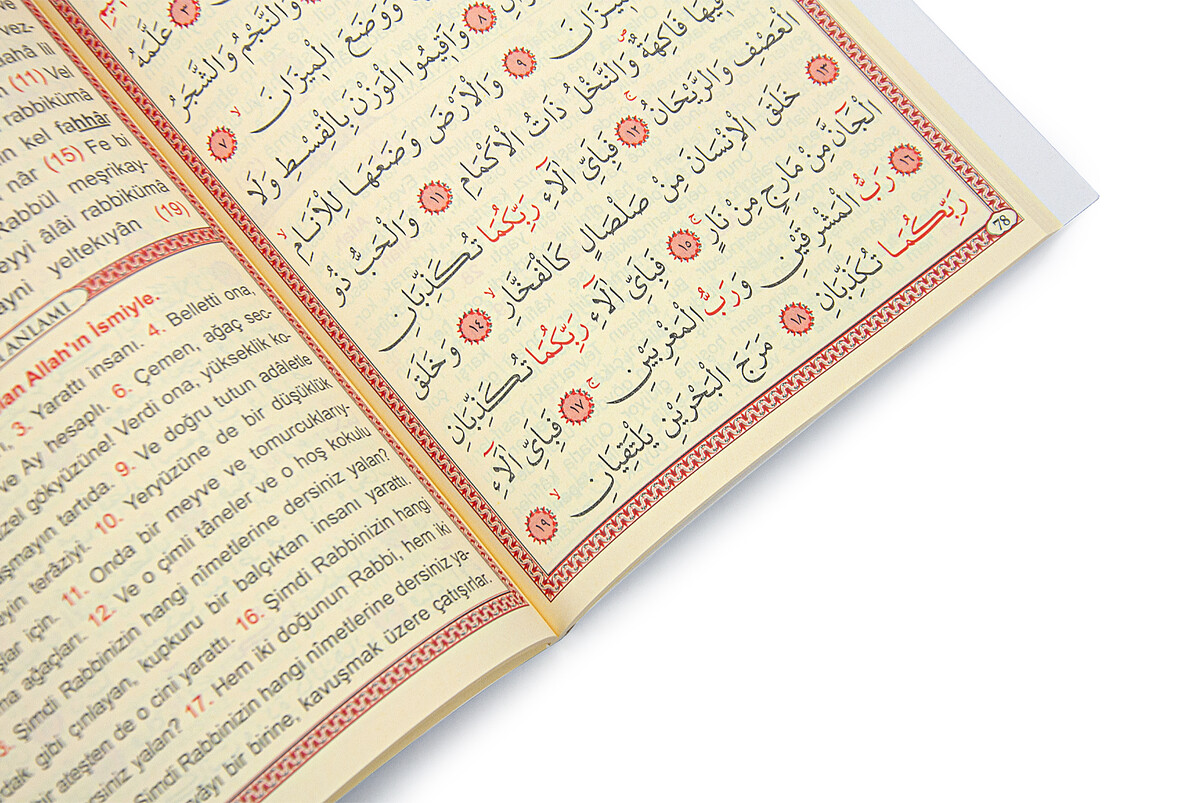 عَلَّمَهُ
وَالنَّجْمُ وَالشَّجَرُ
وَوَضَعَ الْمِيزَانَ ٧
٨ وَاَقِيمُوا الْوَزْنَ بِالْقِسْطِ وَلَا
الْمِيزَانَ ٩ وَالْاَرْضَ وَضَعَهَا لِلْاَنَامِ
فِيهَا فَاكِهَةٌ وَالنَّخْلُ ذَاتُ الْاَكْمَامِ ١١ وَالْحَبُّ ذُو
الْعَصْفِ وَالرَّيْحَانُ ١٢ فَبِاَىِّ اٰلَٓاءِ رَبِّكُمَا تُكَذِّبَانِ
١٣ خَلَقَ الْاِنْسَانَ مِنْ صَلْصَالٍ كَالْفَخَّارِ ١٤ وَخَلَقَ
الْجَٓانَّ مِنْ مَارِجٍ مِنْ نَارٍ ١٥ فَبِاَىِّ اٰلَٓاءِ رَبِّكُمَا تُكَذِّبَانِ
١٦ رَبُّ الْمَشْرِقَيْنِ وَرَبُّ الْمَغْرِبَيْنِ ١٧ فَبِاَىِّ اٰلَٓاءِ
رَبِّكُمَا تُكَذِّبَانِ ١٨ مَرَجَ الْبَحْرَيْنِ يَلْتَقِيَانِ ١٩
78
vez-
lil
(11) Vel
rabbikümâ
kel fahhâr
nâr (15) Fe bi
Rabbül meşrikay-
eyyi âlâi rabbikümâ
yeltekıyân (19)
ANLAMI
Allah'ın İsmiyle.
3. Yarattı insanı. 4. Belletti ona,
ve Ay hesaplı. 6. Çemen, ağaç sec-
gökyüzüne! Verdi ona, yükseklik ko-
tartıda. 9. Ve doğru tutun adâletle
terâziyi. 10. Yeryüzüne de bir düşüklük
için. 11. Onda bir meyve ve tomurcuklarıy-
ağaçları. 12. Ve o çimli tâneler ve o hoş kokulu
Şimdi Rabbinizin hangi nîmetlerine dersiniz yalan?
gibi çınlayan, kupkuru bir balçıktan insanı yarattı
ateşten de o cini yarattı. 16. Şimdi Rabbinizin hangi
yalan? 17. Hem iki doğunun Rabbi, hem iki
Şimdi Rabbinizin hangi nîmetlerine dersiniz ya-
bir birine, kavuşmak üzere çatışırlar.